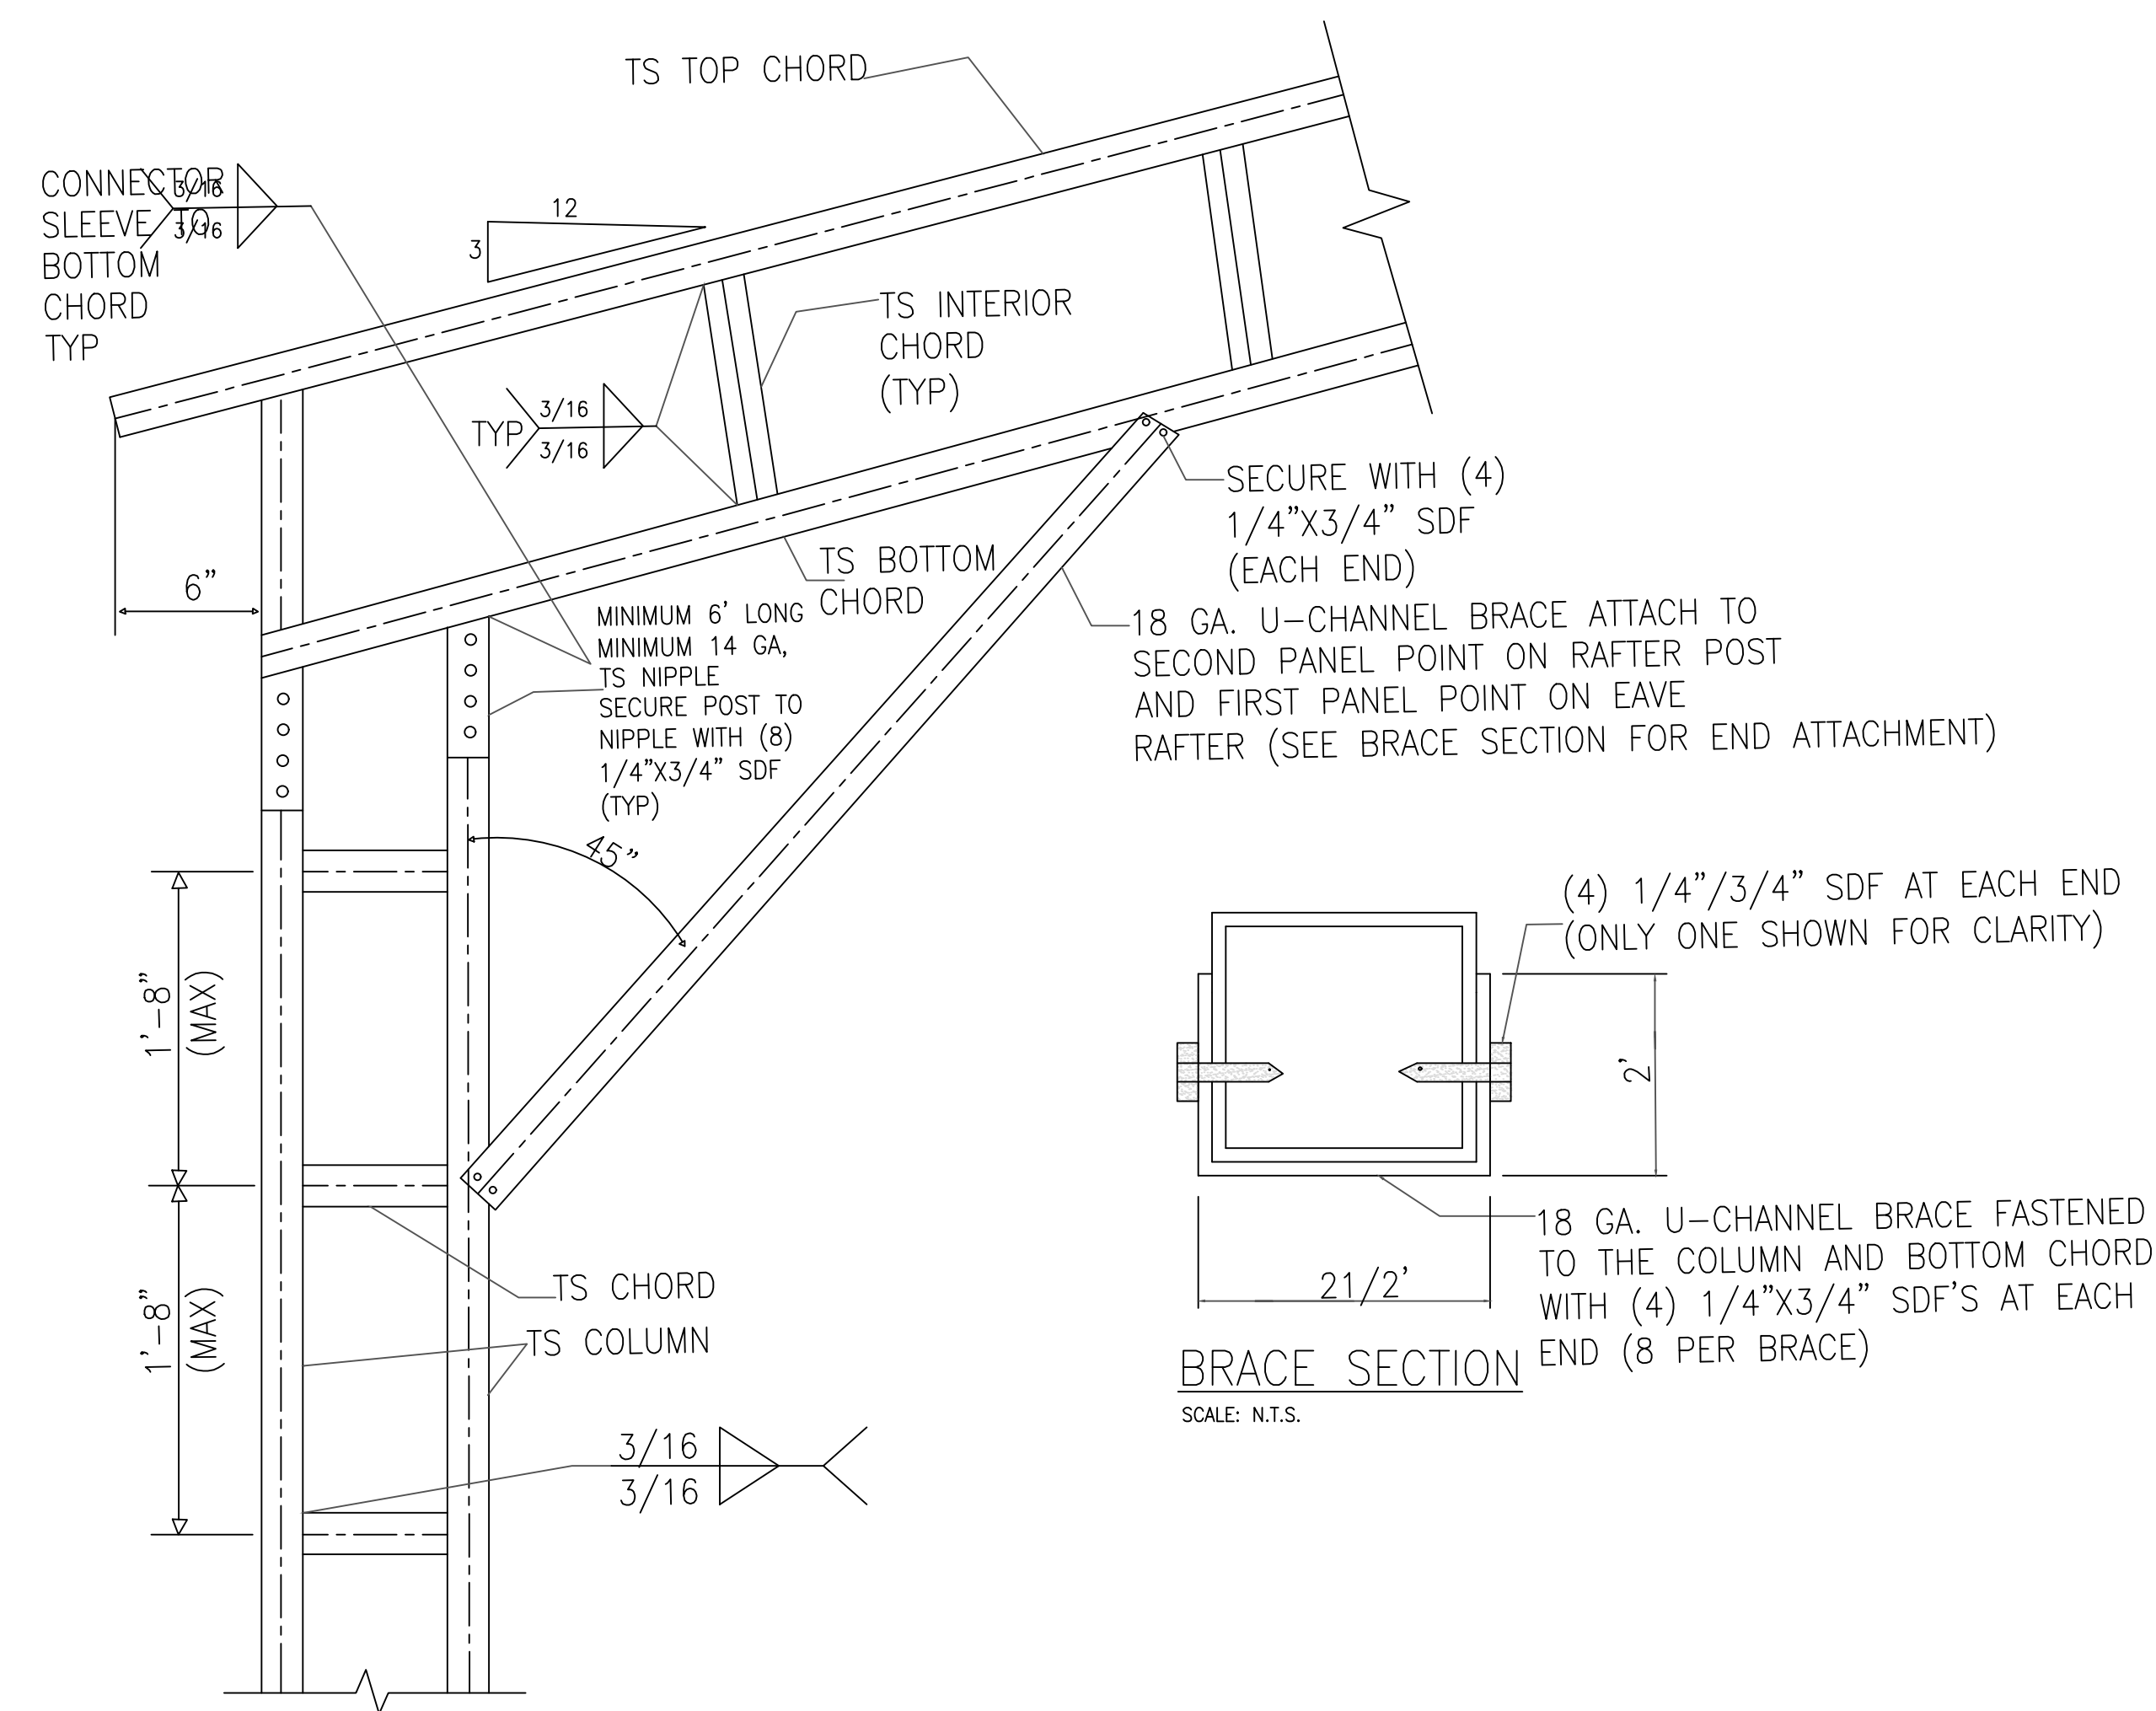 TS TOP CHORD
CONNECTOR
SLEEVE TO
BOTTOM
CHORD
TYP
3/16
3/16
12
3
TS INTERIOR
CHORD
(TYP)
TYP
3/16
3/16
SECURE WITH (4)
1/4"X3/4" SDF
(EACH END)
TS BOTTOM
CHORD
6"
MINIMUM 6' LONG
MINIMUM 14 GA,
TS NIPPLE
SECURE POST TO
NIPPLE WITH (8)
1/4"X3/4" SDF
(TYP)
18 GA. U-CHANNEL BRACE ATTACH TO
SECOND PANEL POINT ON RAFTER POST
AND FIRST PANEL POINT ON EAVE
RAFTER (SEE BRACE SECTION FOR END ATTACHMENT)
45"
1'-8"
(MAX)
1'-8"
(MAX)
TS CHORD
TS COLUMN
3/16
3/16
(4) 1/4"/3/4" SDF AT EACH END
(ONLY ONE SHOWN FOR CLARITY)
2'
21/2'
18 GA. U-CHANNEL BRACE FASTENED
TO THE COLUMN AND BOTTOM CHORD
WITH (4) 1/4"X3/4" SDF'S AT EACH
END (8 PER BRACE)
BRACE SECTION
SCALE: N.T.S.